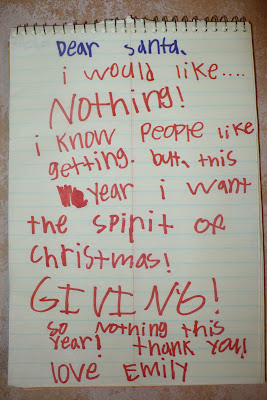 Dear Santa,
i would like....
Nothing!
i know people like
getting. but, this
year i want
the spirit of
christmas!
GIVING!
so nothing this
year! thank you!
love Emily